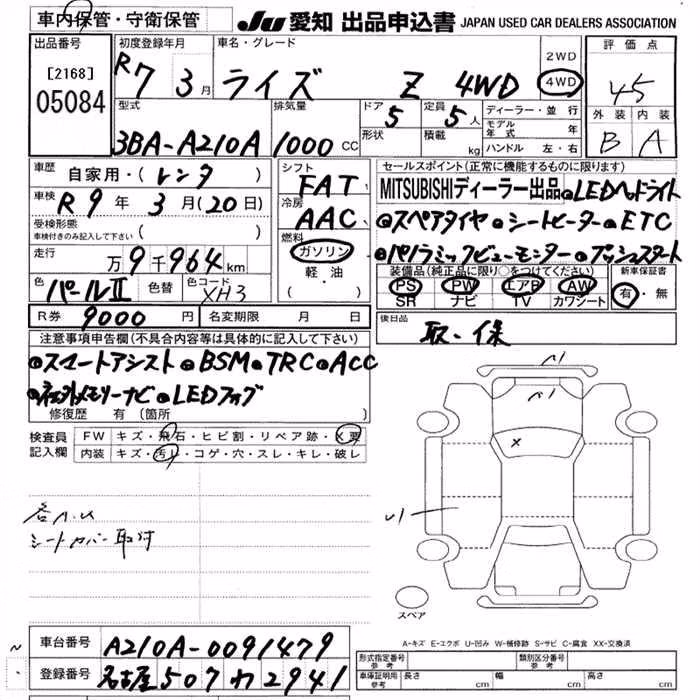 車内保管・守衛保管
JU 愛知 出品申込書 JAPAN USED CAR DEALERS ASSOCIATION
出品番号 初度登録年月 車名・グレード 評価点
[2168] 05084
R7 3月 ライズ Z 4WD 2WD 4WD 45
型式 排気量 ドア 5 定員 5人 ディーラー・並行 外装 内装
3BA-A210A 1000 CC 形状 積載 kg モデル年式 年 B A
ハンドル 左・右
車歴 自家用・(レンタ) シフト FAT セールスポイント(正常に機能するものに限ります)
車検 R9年3月(20日) 冷房 AAC MITSUBISHIディーラー出品 ●LEDヘッドライト
受検形態 ( ) ●スペアタイヤ ●シートヒーター ●ETC
車検付きのみ記入して下さい
走行 万9千964km 燃料 ガソリン ●パノラミックビューモニター ●プッシュスタート
軽・油 装備品(純正品に限り○をつけてください) 新車保証書
色 パールII 色替 色コード XH3 ( ・ ) PS PW エアB AW 有・無
SR ナビ TV カワシート
R券 9000円 名変期限 月 日 後日品
取・保
注意事項申告欄(不具合内容等は具体的に記入して下さい)
●スマートアシスト ●BSM ●TRC ●ACC
●LEDフォグ
修復歴 有 (箇所 )
検査員記入欄 FW キズ・飛石・ヒビ割・リペア跡・X要
内装 キズ・汚レ・コゲ・穴・スレ・キレ・破レ
シートカバー取付
スペア
A-キズ E-エクボ U-凹み W-補修跡 S-サビ C-腐食 XX-交換済
車台番号 A210A-0091479
登録番号 名古屋 507 カ 2941
形式指定番号 参考 類別区分番号 参考
車庫証明用 参考 長さ cm 幅 cm 高さ cm